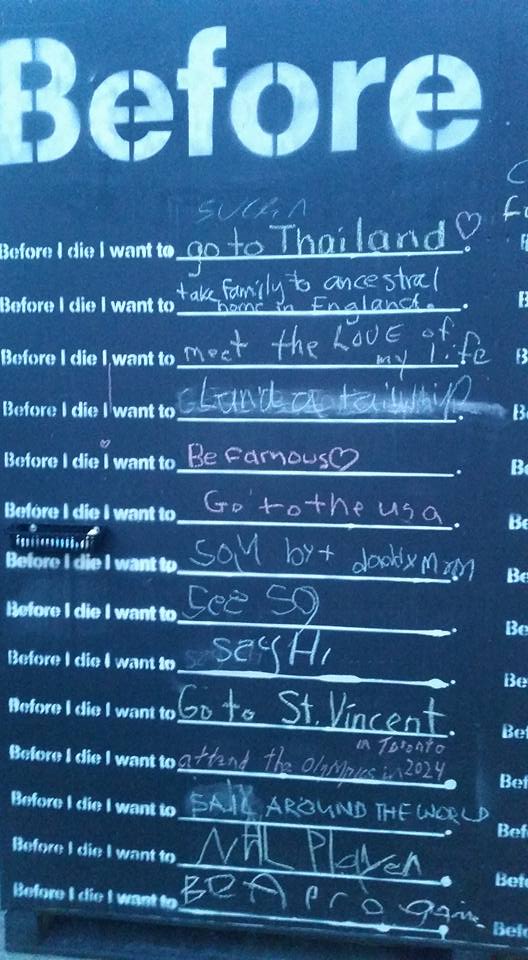 Before
Before I die I want to go to Thailand.
Before I die I want to take family to ancestral
home in England.
Before I die I want to meet the LOVE of
my life
Before I die I want to Land a tailwhip.
Before I die I want to Be famous.
Before I die I want to Go to the usa.
Before I die I want to
Before I die I want to See.
Before I die I want to say Hi.
Before I die I want to Go to St. Vincent.
in Toronto
Before I die I want to attend the Olympics in 2024.
Before I die I want to SAIL AROUND THE WORLD.
Before I die I want to NHL Player.
Before I die I want to BE A Pro.